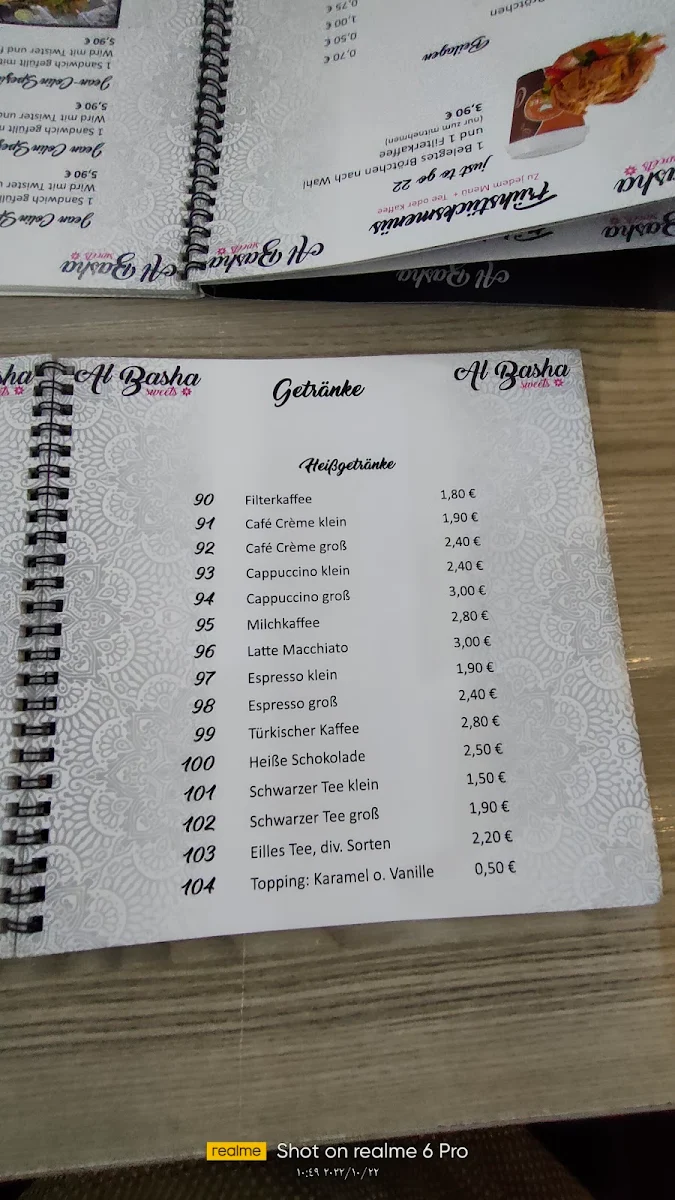 5,90 €
Wird mit Twister und
1 Sandwich gefüllt mit
Jean Colin Spezi
5,90 €
Wird mit Twister und
1 Sandwich gefüllt
Jean Colin Spe
5,90 €
Wird mit Twister
1 Sandwich gefüllt
Jean Colin Sp
Al Basha
sweets
Brötchen
0,75 €
1,00 €
0,50 €
0,70 €
Beilagen
3,90 €
(nur zum mitnehmen)
und 1 Filterkaffee
1 Belegtes Brötchen nach Wahl
just to go 22
Zu jedem Menü + Tee oder Kaffee
Frühstücksmenüs
Al Basha
sweets
asha
sweets
Al Basha
Basha
sha
ts
Al Basha
sweets
Getränke
Al Basha
sweets
Heißgetränke
90 Filterkaffee 1,80 €
91 Café Crème klein 1,90 €
92 Café Crème groß 2,40 €
93 Cappuccino klein 2,40 €
94 Cappuccino groß 3,00 €
95 Milchkaffee 2,80 €
96 Latte Macchiato 3,00 €
97 Espresso klein 1,90 €
98 Espresso groß 2,40 €
99 Türkischer Kaffee 2,80 €
100 Heiße Schokolade 2,50 €
101 Schwarzer Tee klein 1,50 €
102 Schwarzer Tee groß 1,90 €
103 Eilles Tee, div. Sorten 2,20 €
104 Topping: Karamel o. Vanille 0,50 €
realme Shot on realme 6 Pro
١٠:٤٩ ٢٠٢٢/١٠/٢٢